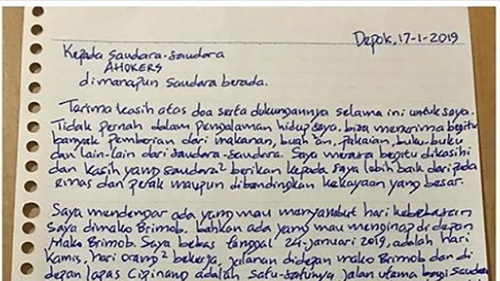 Depok, 17-1-2019
Kepada saudara-saudara
AHOKERS
dimanapun saudara berada.
Tarima kasih atas doa serta dukungannya selama ini untuk saya.
Tidak pernah dalam pengalaman hidup saya, bisa menerima begitu
banyak pemberian dari makanan, buah²an, pakaian, buku-buku
dan lain-lain dari saudara-saudara. Saya merasa begitu dikasihi
dan kasih yang saudara² berikan kepada saya lebih baik daripada
emas dan perak maupun dibandingkan kekayaan yang besar.
Saya mendengar ada yang mau menyambut hari kebebasan
saya dimako Brimob. bahkan ada yang mau menginap di depan
Mako Brimob. Saya bebas tanggal 24-januari 2019, adalah hari
Kamis, hari orang² bekerja, jalanan didepan mako Brimob dan di
depan lapas Cipinang adalah satu-satunya jalan utama bagi saudara